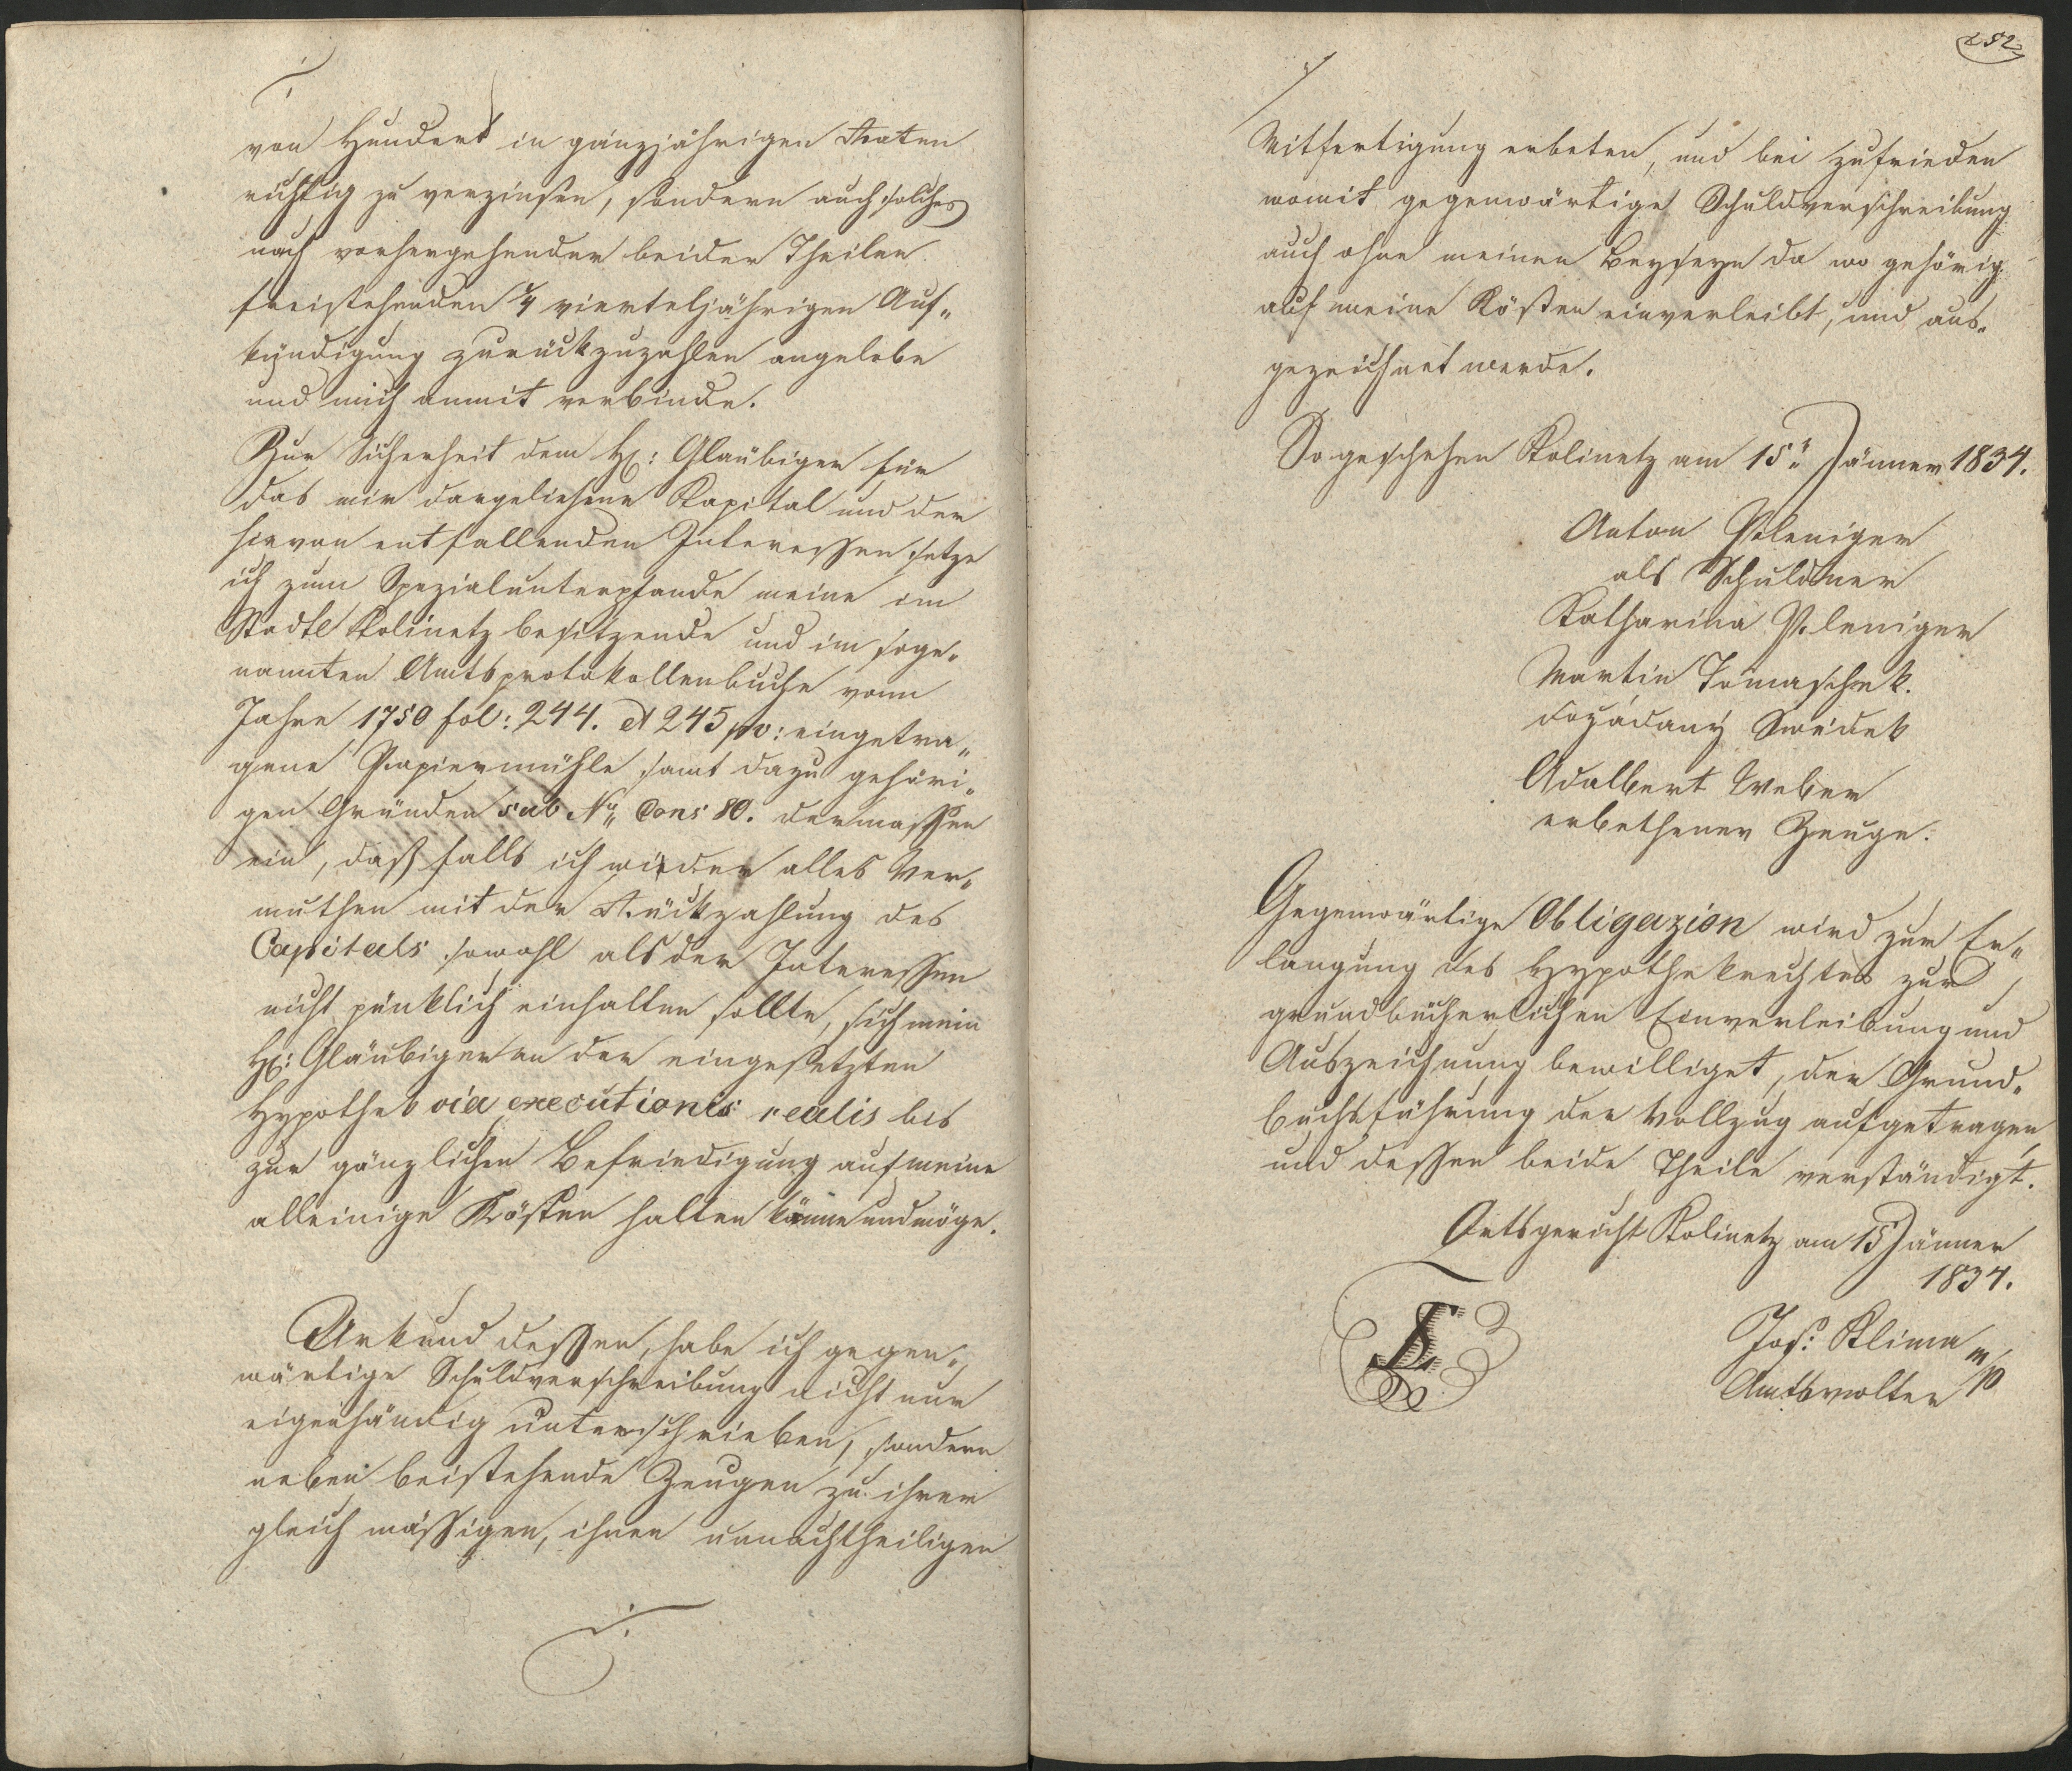 von Hundert in ganzjährigen Raten
richtig zu verzinsen, sondern auch solches
nach vorhergehender beiden Theilen
freistehenden ¼ vierteljährigen Auf„
kündigung zurückzuzahlen angelobe
und mich anmit verbinde.
Zur Sicherheit dem H: Glaübiger für
das mir dargeliehene Kapital und der
hievon entfallenden Interessen setze
ich zum Spezialunterpfande meine im
Stadtl Kolinetz besitzende und im soge„
nannten Amtsprotokollenbuche vom
Jahre 1750 fol: 244. et 245 pv: eingetra„
gene Papiermühle samt dazu gehöri„
gen Gründen sub No Cons 80. dermassen
ein, daß falls ich wieder alles Ver„
muthen mit der Rückzahlung des
Capitals sowohl als der Interessen
nicht pünklich einhalten sollte, sich mein
H: Gläubiger an der eingesetzten
Hypothek via executionis realis bis
zur gänzlichen Befriedigung auf meine
alleinige Kösten halten könne und möge.
Urkund dessen, habe ich gegen„
wärtige Schuldverschreibung nicht nur
eigenhändig unterschrieben, sondern
neben beistehende Zeugen zu ihrer
gleich mässigen, ihnen unnachtheiligen
252
Mitfertigung erbeten, und bei zufrieden
womit gegenwärtige Schuldverschreibung
auch ohne meinen Beyseyn da wo gehörig
auf meine Kösten einverleibt, und aus„
gezeichnet werde.
So geschehen Kolinetz am 15" Jänner 1834.
Anton Pöleniger
als Schuldner
Katharina Pöleniger
Martin Tomaschek.
dožádaný Swědek
Adalbert Weber
erbethener Zeuge.
Gegenwärtige Obligazion wird zur Er„
langung des Hypothekrechtes zur
grundbücherlichen Einverleibung und
Auszeichnung bewilliget, der Grund„
buchsführung der Vollzug aufgetragen
und dessen beide Theile verständigt.
Ortsgericht Kolinetz am 15 Jänner
1834.
LS
Jos: Klima m/p
Amtsvolter